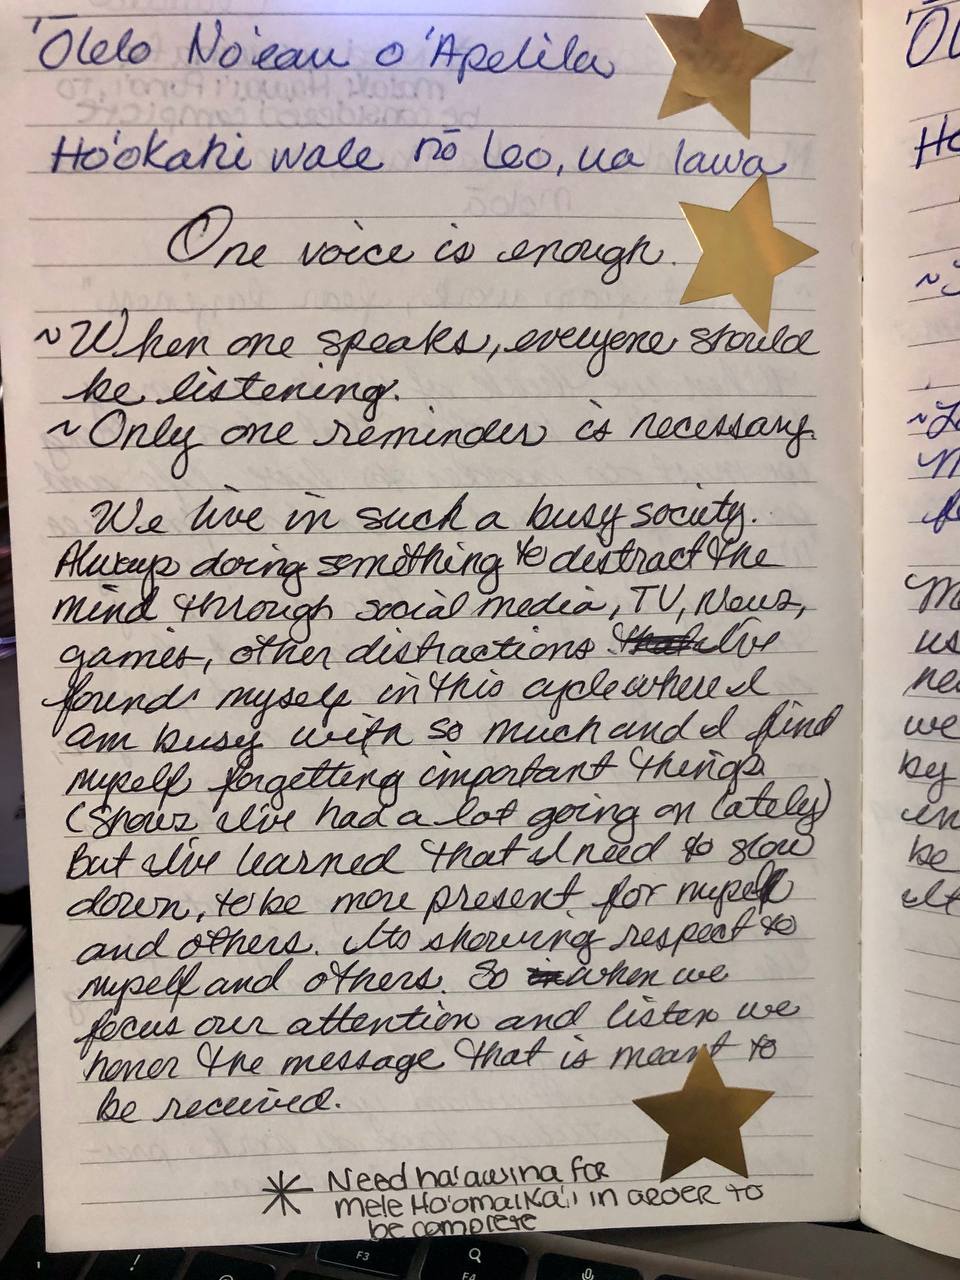 'Ōlelo No'eau o 'Apelila
Ho'okahi wale nō leo, ua lawa
One voice is enough.
~When one speaks, everyone should
be listening.
~Only one reminder is necessary.
We live in such a busy society.
Always doing something to distract the
mind through social media, TV, News,
games, other distractions. I've
found myself in this cycle where I
am busy with so much and I find
myself forgetting important things
(shows I've had a lot going on lately)
But I've learned that I need to slow
down, to be more present for myself
and others. Its showing respect to
myself and others. So when we
focus our attention and listen we
honor the message that is meant to
be received.
* Need ha'awina for
mele Ho'omaika'i in order to
be complete
'Ōl
Ho
F3
F4